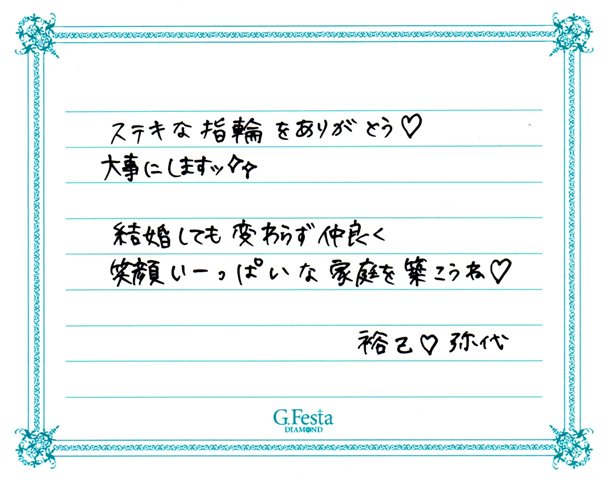 ステキな指輪をありがとう♡
大事にしますッ✧✧
結婚しても変わらず仲良く
笑顔いーっぱいな家庭を築こうね♡
裕己♡弥代
G.Festa
DIAMOND